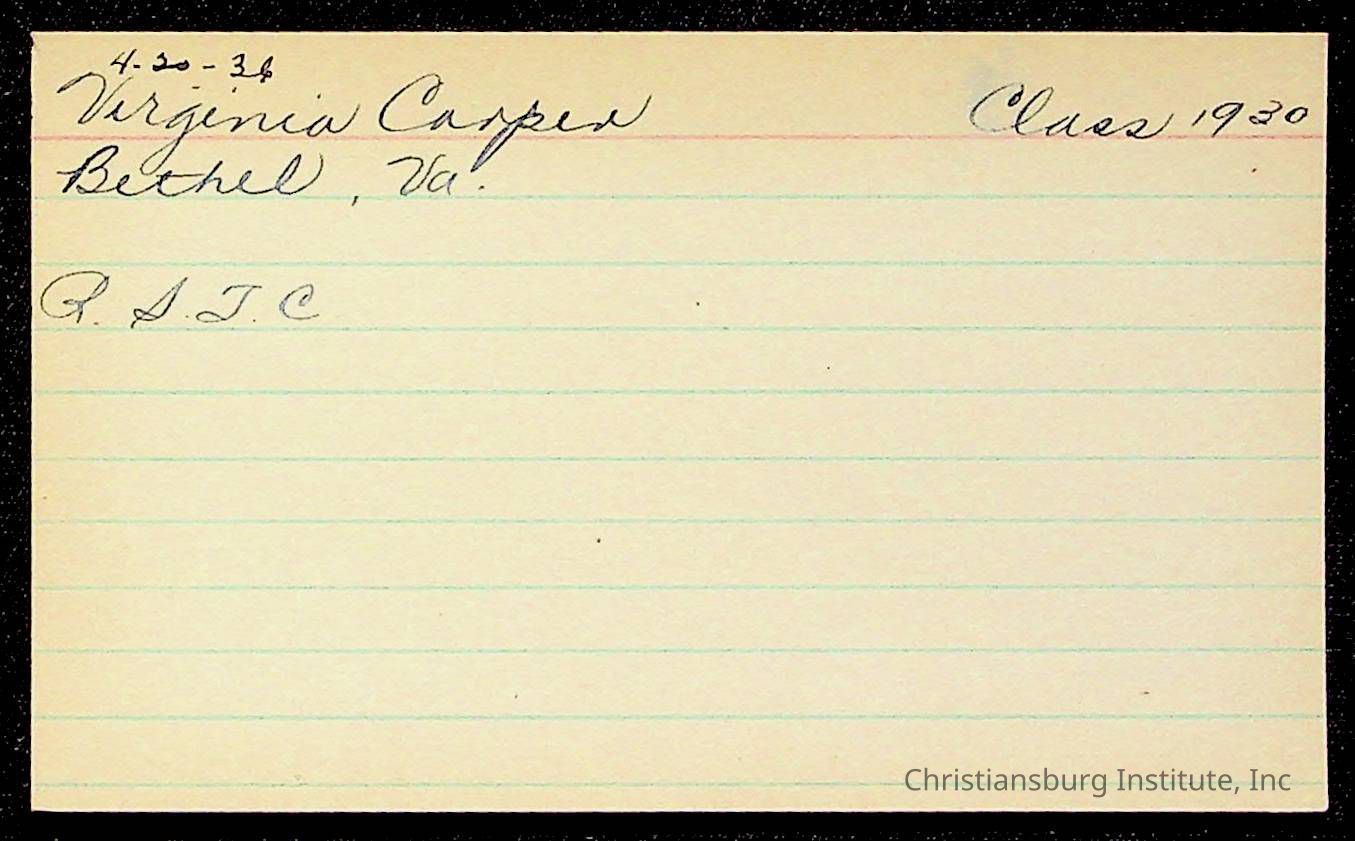 4-20-36
Virginia Carper Class 1930
Bethel, Va.
R. S. T. C
Christiansburg Institute, Inc